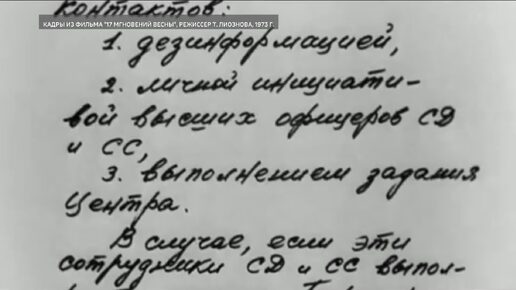 КАДРЫ ИЗ ФИЛЬМА "17 МГНОВЕНИЙ ВЕСНЫ", РЕЖИССЕР Т. ЛИОЗНОВА, 1973 Г.
контактов:
1. дезинформацией,
2. личной инициати-
вой высших офицеров СД
и СС,
3. выполнением задания
Центра.
В случае, если эти
сотрудники СД и СС выпол-